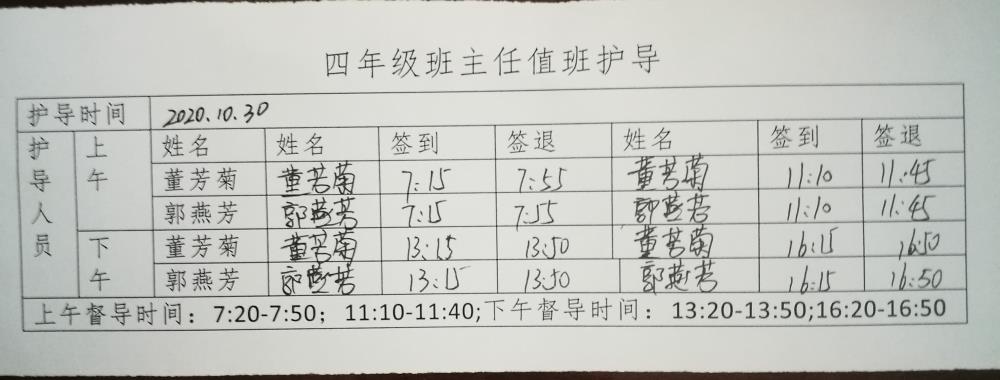 四年级班主任值班护导
护导时间 2020.10.30
护导人员 上午 姓名 姓名 签到 签退 姓名 签到 签退
董芳菊 董芳菊 7:15 7:55 董芳菊 11:10 11:45
郭燕芳 郭燕芳 7:15 7:55 郭燕芳 11:10 11:45
下午 董芳菊 董芳菊 13:15 13:50 董芳菊 16:15 16:50
郭燕芳 郭燕芳 13:15 13:50 郭燕芳 16:15 16:50
上午督导时间：7:20-7:50；11:10-11:40;下午督导时间：13:20-13:50;16:20-16:50